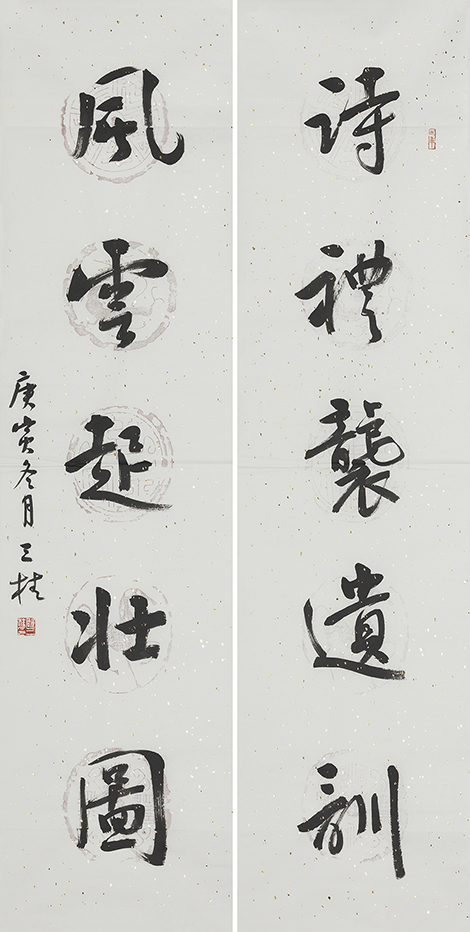 詩禮襲遺訓
風雲起壯圖
庚寅冬月三桂